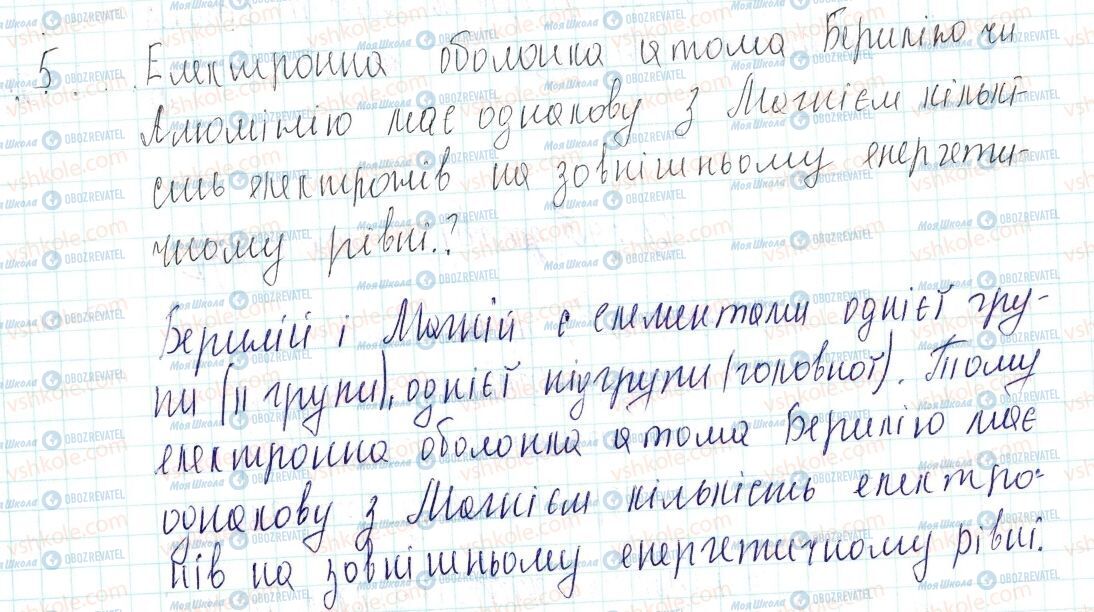 5. Електронна оболонка атома Берилію чи
Алюмінію має однакову з Магнієм кількі-
сть електронів на зовнішньому енергети-
чному рівні.?
Берилій і Магній є елементами однієї гру-
пи (II групи), однієї підгрупи (головної). Тому
електронна оболонка атома Берилію має
однакову з Магнієм кількість електро-
нів на зовнішньому енергетичному рівні.